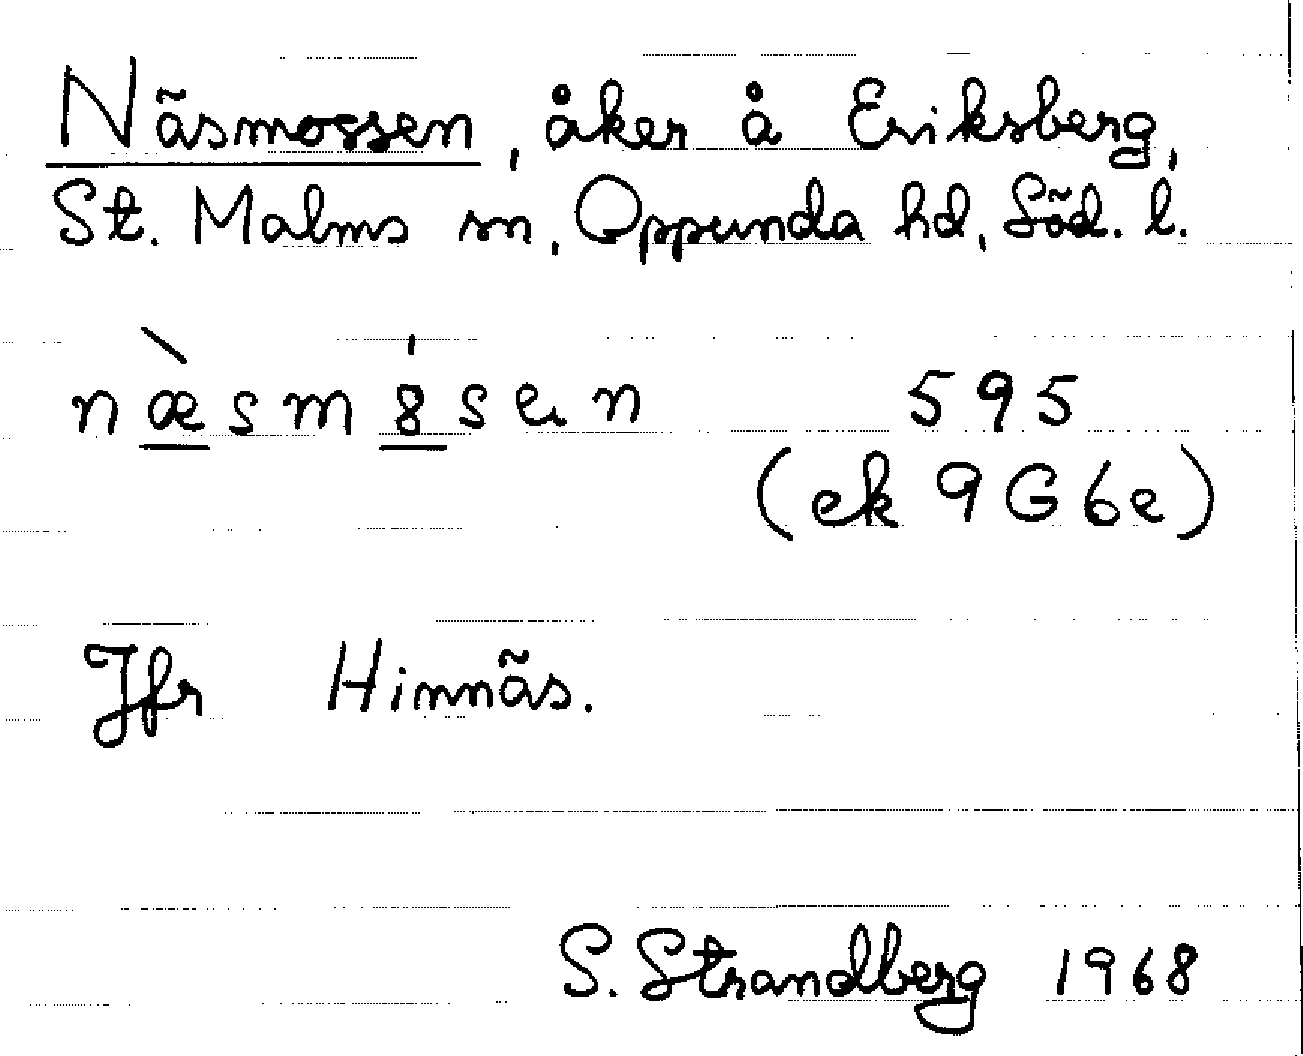 Näsmossen, åker å Eriksberg,
St. Malms sn, Oppunda hd, Söd. l.
næ̀smȯsen 595
(ek 9G6e)
Jfr Hinnäs.
S. Strandberg 1968